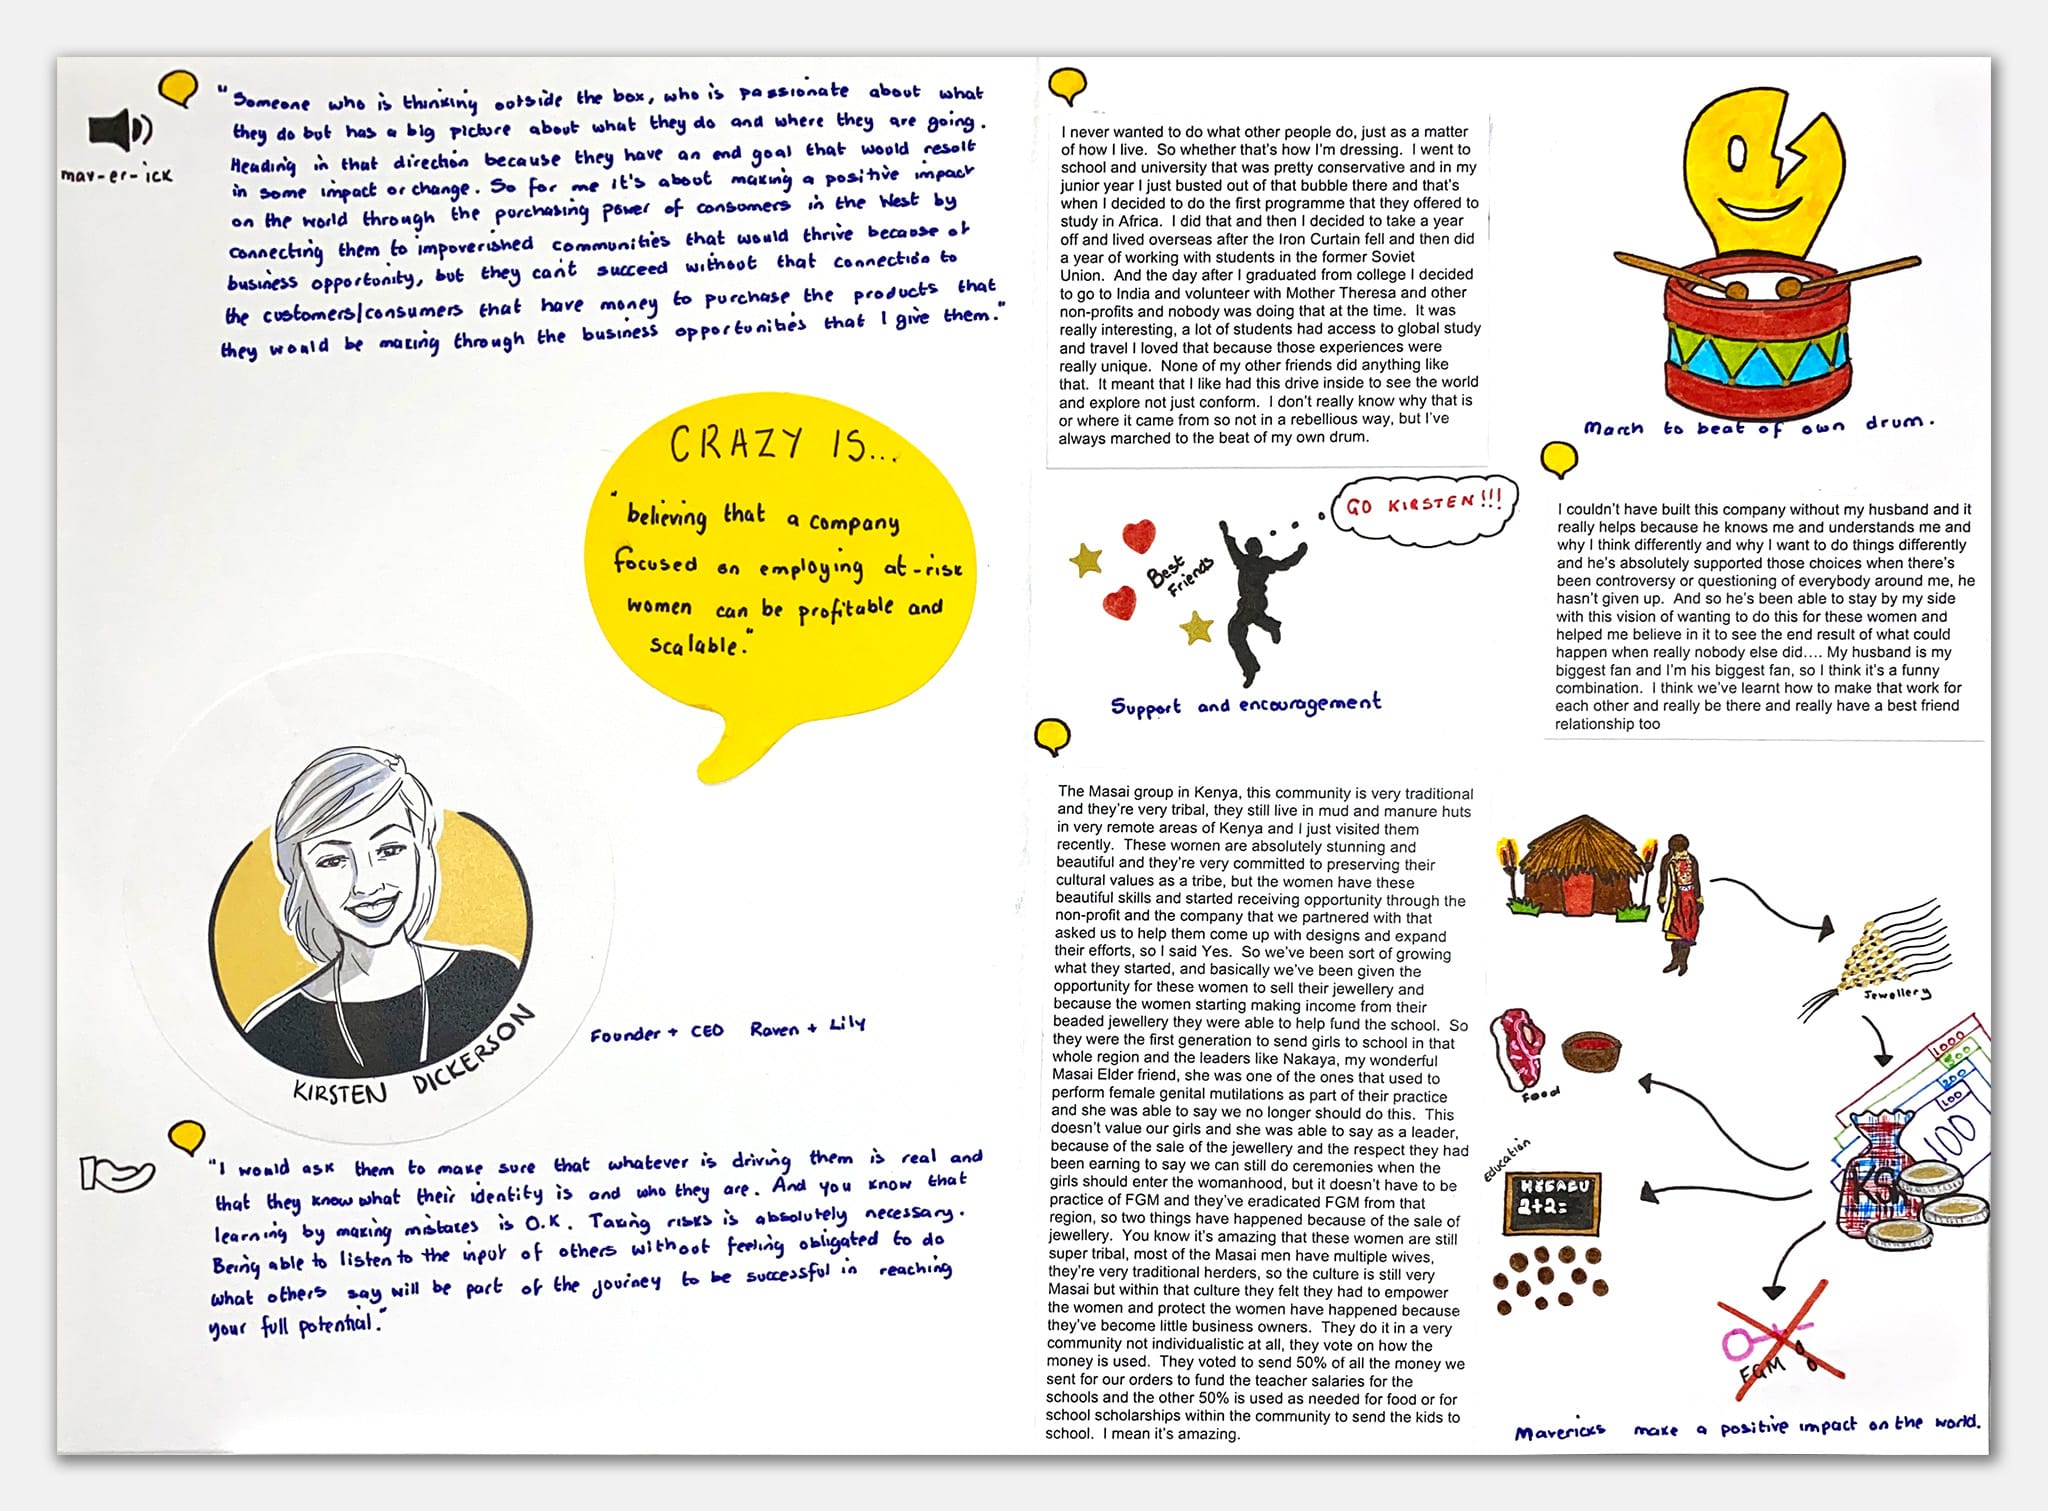 mav-er-ick
"Someone who is thinking outside the box, who is passionate about what
they do but has a big picture about what they do and where they are going.
Heading in that direction because they have an end goal that would result
in some impact or change. So for me it's about making a positive impact
on the world through the purchasing power of consumers in the West by
connecting them to impoverished communities that would thrive because of
business opportunity, but they can't succeed without that connection to
the customers/consumers that have money to purchase the products that
they would be making through the business opportunities that I give them."
CRAZY IS...
"believing that a company
focused on employing at-risk
women can be profitable and
scalable."
KIRSTEN DICKERSON
Founder + CEO Raven + Lily
"I would ask them to make sure that whatever is driving them is real and
that they know what their identity is and who they are. And you know that
learning by making mistakes is O.K. Taking risks is absolutely necessary.
Being able to listen to the input of others without feeling obligated to do
what others say will be part of the journey to be successful in reaching
your full potential."
I never wanted to do what other people do, just as a matter
of how I live. So whether that's how I'm dressing. I went to
school and university that was pretty conservative and in my
junior year I just busted out of that bubble there and that's
when I decided to do the first programme that they offered to
study in Africa. I did that and then I decided to take a year
off and lived overseas after the Iron Curtain fell and then did
a year of working with students in the former Soviet
Union. And the day after I graduated from college I decided
to go to India and volunteer with Mother Theresa and other
non-profits and nobody was doing that at the time. It was
really interesting, a lot of students had access to global study
and travel I loved that because those experiences were
really unique. None of my other friends did anything like
that. It meant that I like had this drive inside to see the world
and explore not just conform. I don't really know why that is
or where it came from so not in a rebellious way, but I've
always marched to the beat of my own drum.
March to beat of own drum.
GO KIRSTEN!!!
Best
Friends
Support and encouragement
I couldn't have built this company without my husband and it
really helps because he knows me and understands me and
why I think differently and why I want to do things differently
and he's absolutely supported those choices when there's
been controversy or questioning of everybody around me, he
hasn't given up. And so he's been able to stay by my side
with this vision of wanting to do this for these women and
helped me believe in it to see the end result of what could
happen when really nobody else did.... My husband is my
biggest fan and I'm his biggest fan, so I think it's a funny
combination. I think we've learnt how to make that work for
each other and really be there and really have a best friend
relationship too
The Masai group in Kenya, this community is very traditional
and they're very tribal, they still live in mud and manure huts
in very remote areas of Kenya and I just visited them
recently. These women are absolutely stunning and
beautiful and they're very committed to preserving their
cultural values as a tribe, but the women have these
beautiful skills and started receiving opportunity through the
non-profit and the company that we partnered with that
asked us to help them come up with designs and expand
their efforts, so I said Yes. So we've been sort of growing
what they started, and basically we've been given the
opportunity for these women to sell their jewellery and
because the women starting making income from their
beaded jewellery they were able to help fund the school. So
they were the first generation to send girls to school in that
whole region and the leaders like Nakaya, my wonderful
Masai Elder friend, she was one of the ones that used to
perform female genital mutilations as part of their practice
and she was able to say we no longer should do this. This
doesn't value our girls and she was able to say as a leader,
because of the sale of the jewellery and the respect they had
been earning to say we can still do ceremonies when the
girls should enter the womanhood, but it doesn't have to be
practice of FGM and they've eradicated FGM from that
region, so two things have happened because of the sale of
jewellery. You know it's amazing that these women are still
super tribal, most of the Masai men have multiple wives,
they're very traditional herders, so the culture is still very
Masai but within that culture they felt they had to empower
the women and protect the women have happened because
they've become little business owners. They do it in a very
community not individualistic at all, they vote on how the
money is used. They voted to send 50% of all the money we
sent for our orders to fund the teacher salaries for the
schools and the other 50% is used as needed for food or for
school scholarships within the community to send the kids to
school. I mean it's amazing.
Jewellery
1000
500
200
100
100
KSh
Food
Education
HISABU
2+2=
FGM
Mavericks make a positive impact on the world.